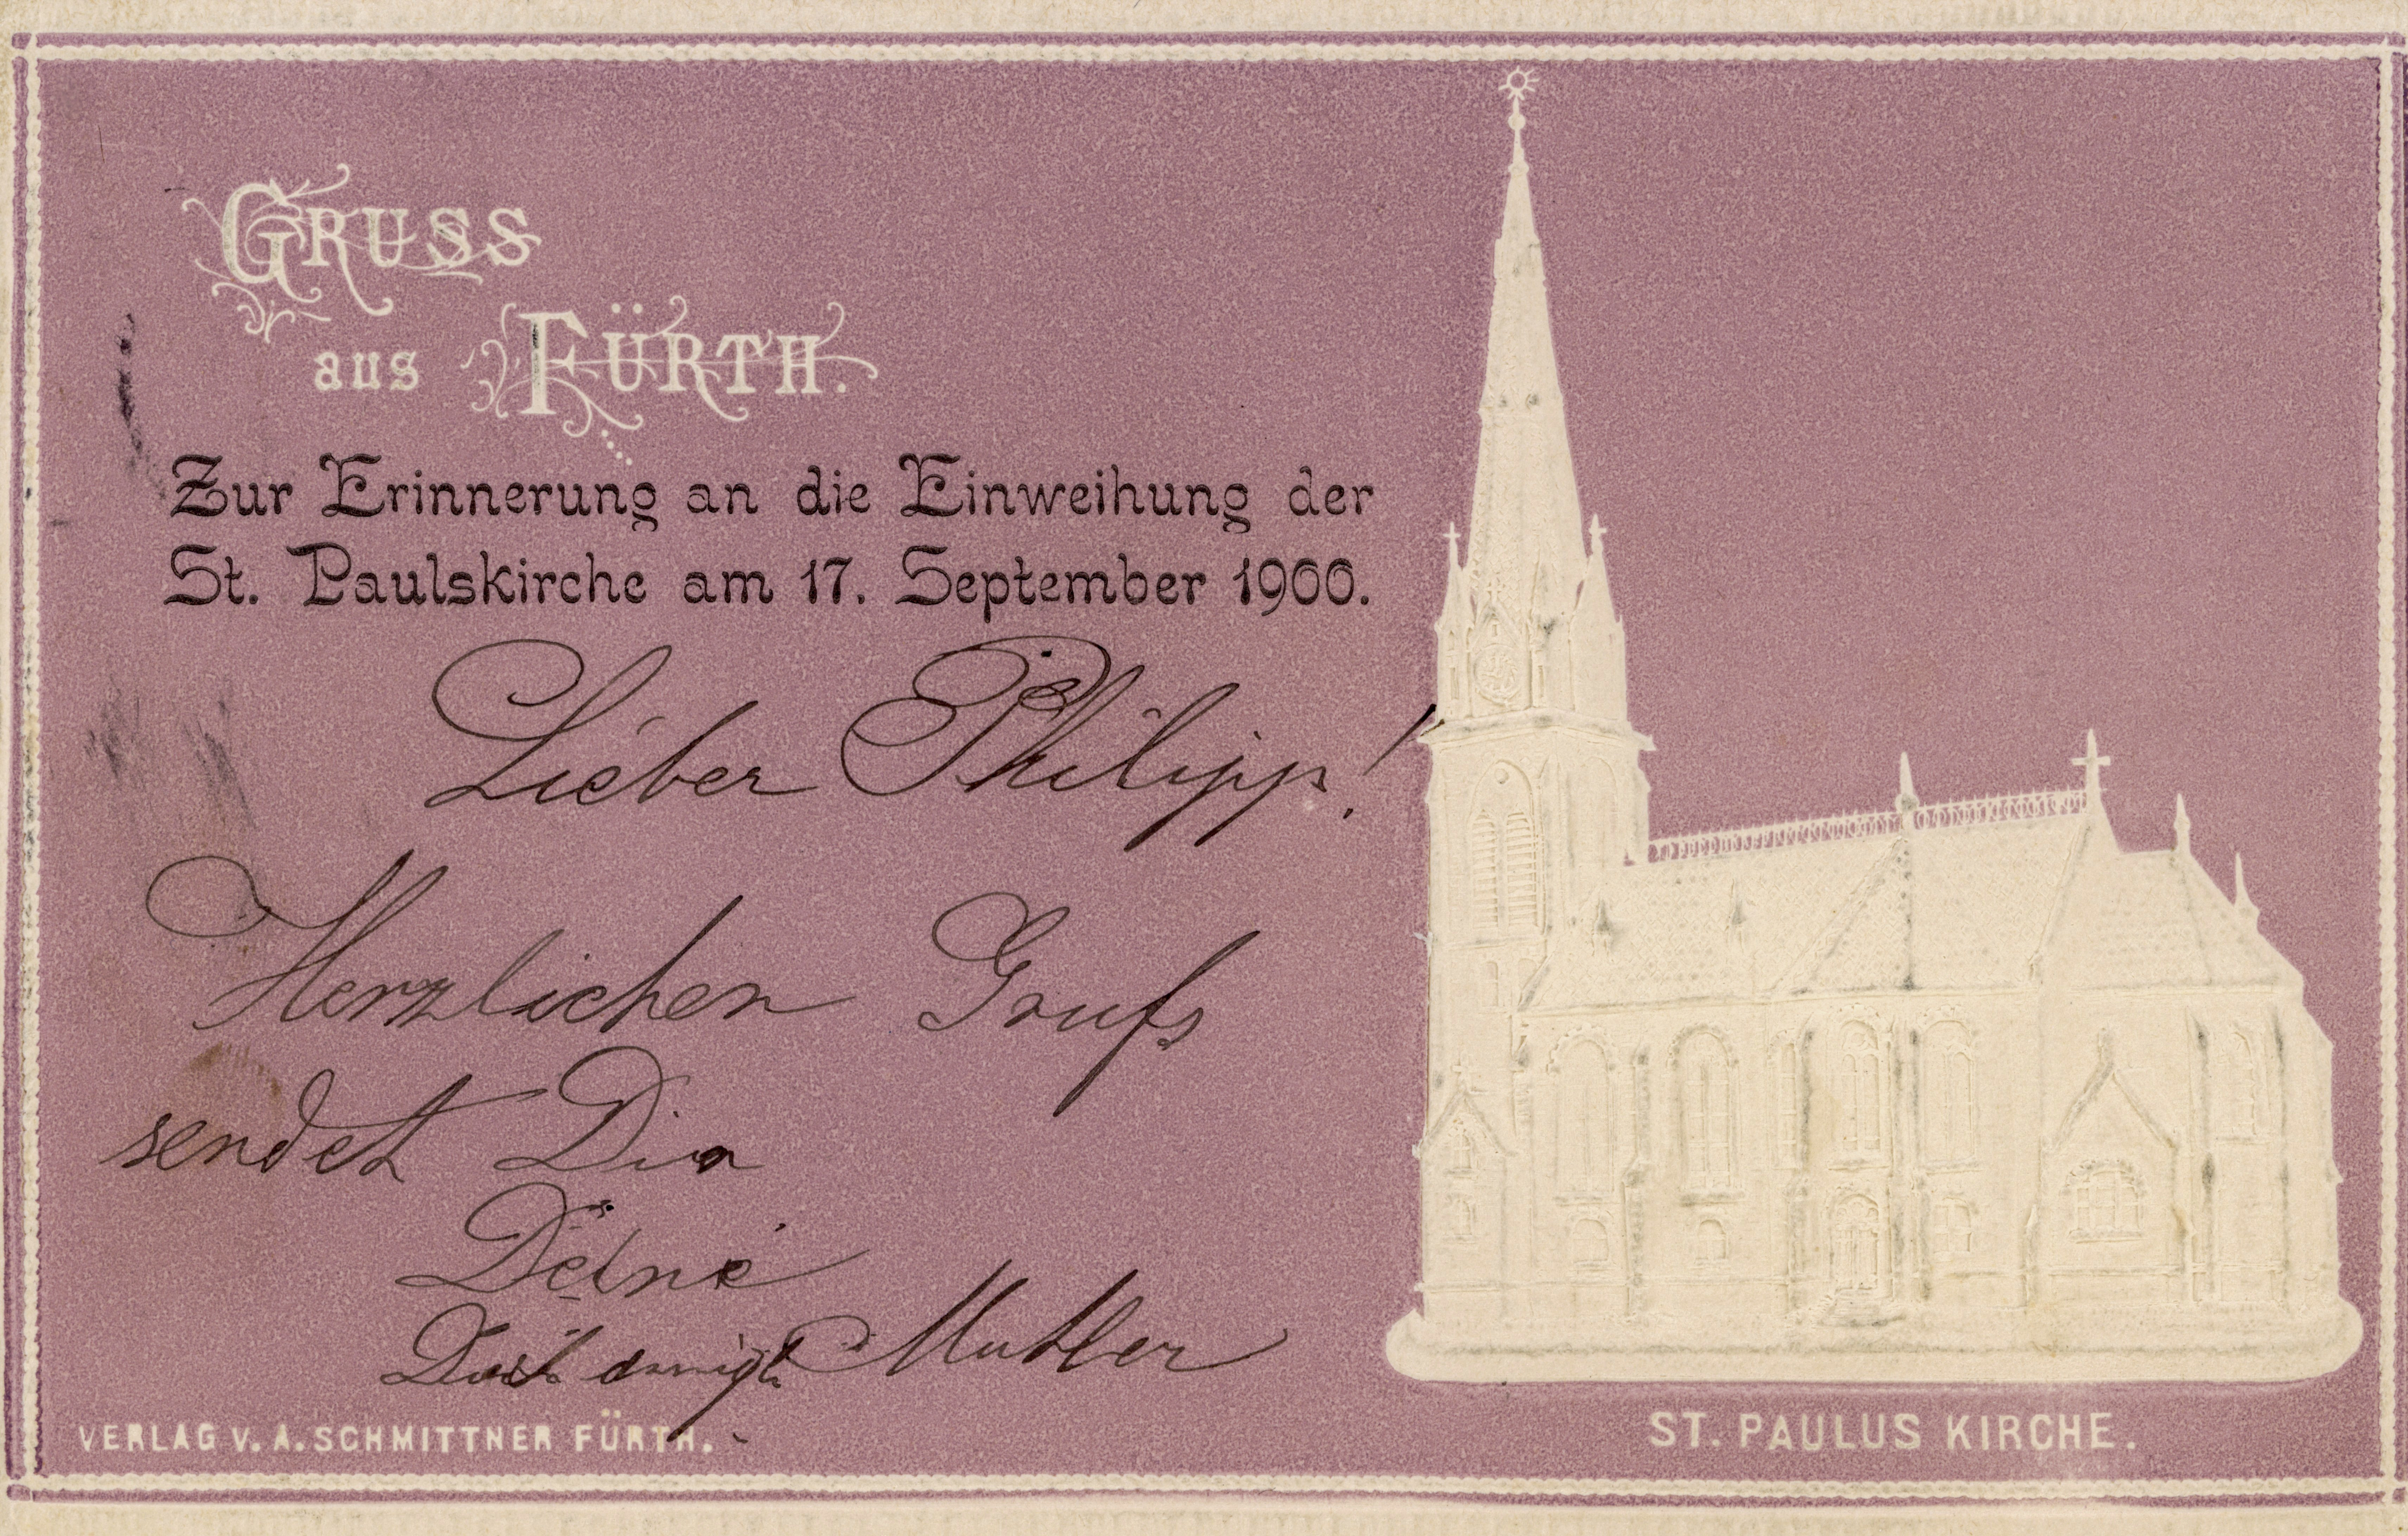 GRUSS
aus FÜRTH.
Zur Erinnerung an die Einweihung der
St. Paulskirche am 17. September 1900.
Lieber Philipp!
Herzlichen Gruß
sendet Dir
Deine
Mutter
VERLAG V. A. SCHMITTNER FÜRTH.
ST. PAULUS KIRCHE.